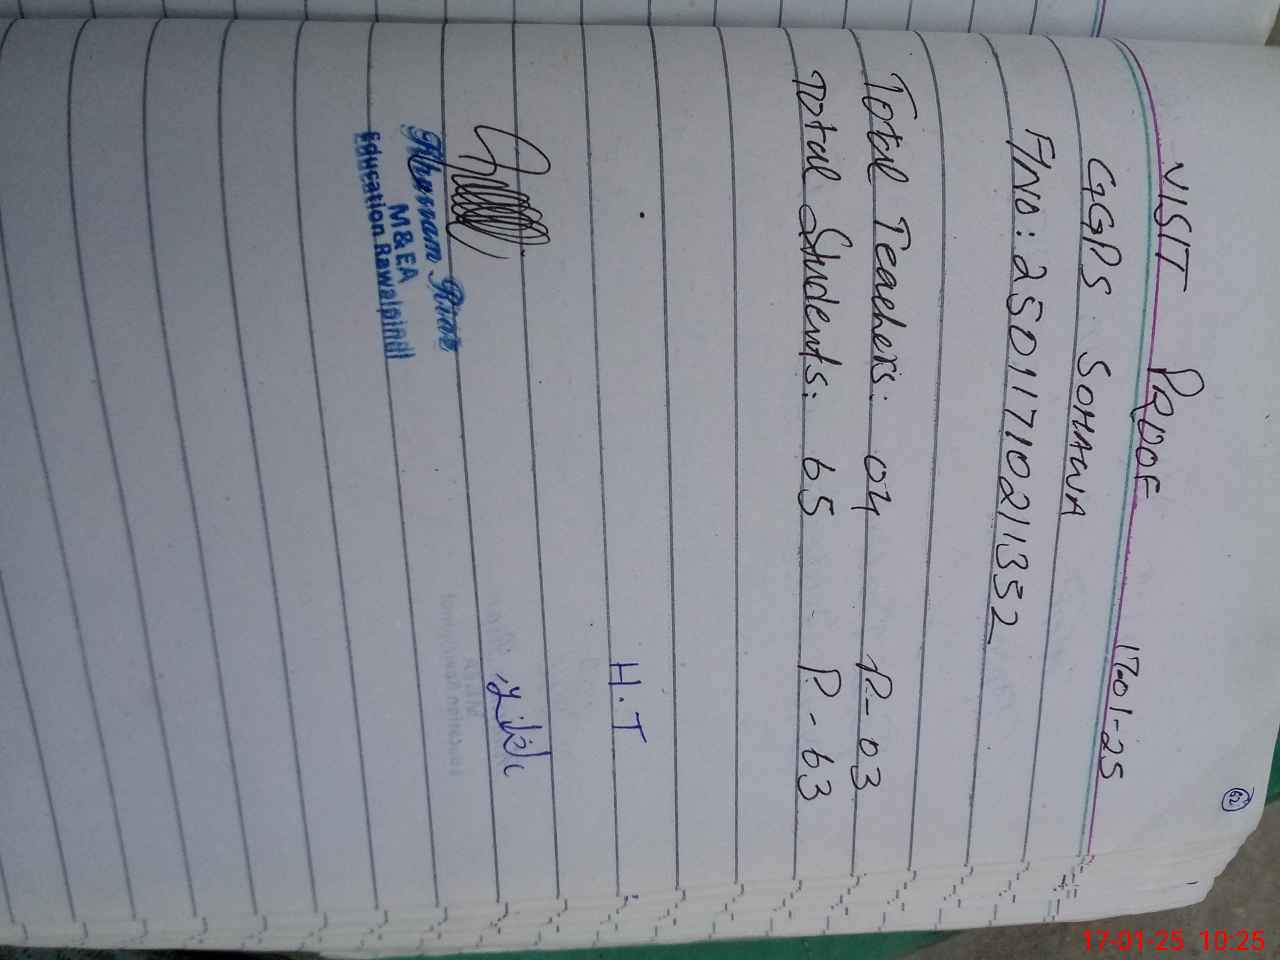 62
VISIT PROOF 17-01-25
GGPS SOHAWA
F/NO: 25011710211352
Total Teachers: 04 P-03
Total Students: 65 P-63
H.T
Khurram Khan
M & EA
Education Rawalpindi
17-01-25 10:25